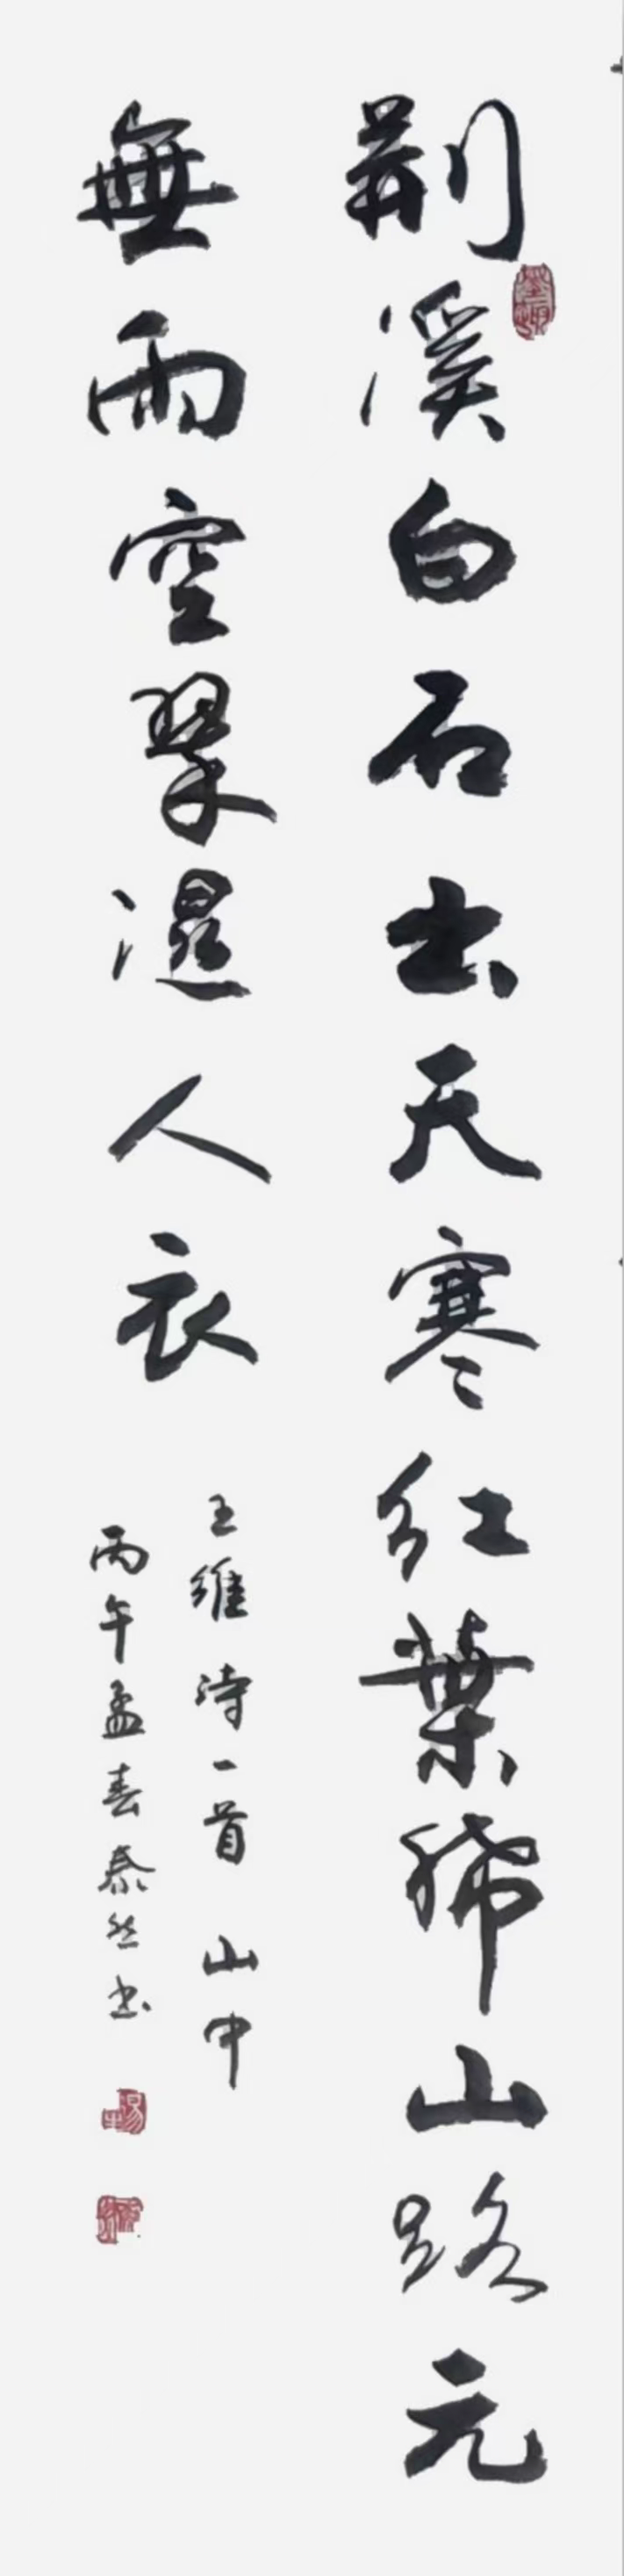 荆溪白石出天寒红葉稀山路元
無雨空翠濕人衣
王維诗一首 山中
丙午孟春泰然书